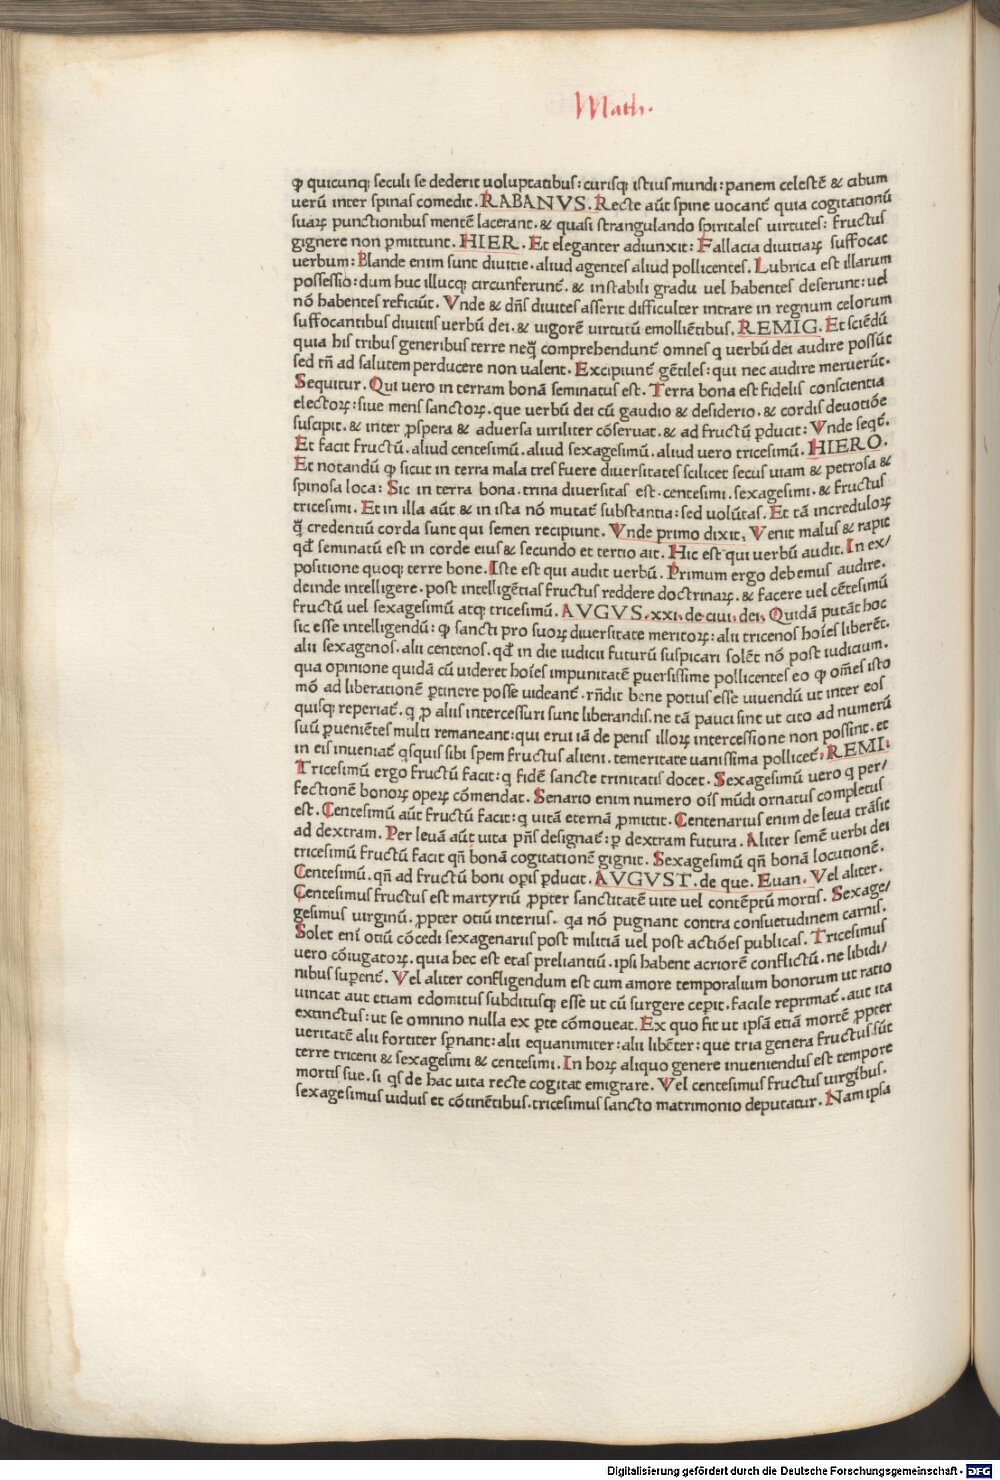 Math.
ꝙ quicunqꝫ seculi se dederit uoluptatibus: curisqꝫ istius mundi: panem celestē & cibum
uerū inter spinas comedit. RABANVS. Recte aūt spine uocant̄ quia cogitationū
suaꝝ punctionibus mentē lacerant. & quasi strangulando spiritales uirtutes: fructus
gignere non ꝑmittunt. HIER. Et eleganter adiunxit: Fallacia diuitiaꝝ suffocat
uerbum: Blande enim sunt diuitie. aliud agentes aliud pollicentes. Lubrica est illarum
possessio: dum huc illucqꝫ circunferunt̄. & instabili gradu uel habentes deserunt: uel
nō habentes reficiūt. Vnde & dn̄s diuites asserit difficulter intrare in regnum celorum
suffocantibus diuitiis uerbū dei. & uigorē uirtutū emolliētibus. REMIG. Et sciēdū
quia his tribus generibus terre neq̄ comprehendunt̄ omnes q uerbū dei audire possūt
sed tn̄ ad salutem perducere non ualent. Excipiunt̄ gētiles: qui nec audire meruerūt.
Sequitur. Qui uero in terram bonā seminatus est. Terra bona est fidelis conscientia
electoꝝ: siue mens sanctoꝝ. que uerbū dei cū gaudio & desiderio. & cordis deuotiōe
suscipit. & inter ꝓspera & aduersa uiriliter cōseruat. & ad fructū ꝑducit: Vnde seqt̄.
Et facit fructū. aliud centesimū. aliud sexagesimū. aliud uero tricesimū. HIERO.
Et notandū ꝙ sicut in terra mala tres fuere diuersitates scilicet secus uiam & petrosa &
spinosa loca: Sic in terra bona. trina diuersitas est. centesimi. sexagesimi. & fructus
tricesimi. Et in illa aūt & in ista nō mutat̄ substantia: sed uolūtas. Et tā increduloꝝ
q̄ credentiū corda sunt qui semen recipiunt. Vnde primo dixit, Venit malus & rapit
qd̄ seminatū est in corde eius & secundo et tertio ait. Hic est qui uerbū audit. In ex/
positione quoqꝫ terre bone. Iste est qui audit uerbū. Primum ergo debemus audire.
deinde intelligere. post intelligētias fructus reddere doctrinaꝝ. & facere uel cētesimū
fructū uel sexagesimū atqꝫ tricesimū. AVGVS. xxi. de ciui. dei. Quidā putāt hoc
sic esse intelligendū: ꝙ sancti pro suoꝝ diuersitate meritoꝝ: alii tricenos hoīes liberēt.
alii sexagenos. alii centenos. qd̄ in die iudicii futurū suspicari solēt nō post iudicium.
qua opinione quidā cū uideret hoīes impunitatē ꝑuersissime pollicentes eo ꝙ om̄es isto
mō ad liberationē ꝑtinere posse uideant̄. rn̄dit bene potius esse uiuendū ut inter eos
quisqꝫ reperiat̄. q ꝓ aliis intercessuri sunt liberandis. ne tā pauci sint ut cito ad numerū
suū ꝑuenientes multi remaneant: qui erui iā de penis illoꝝ intercessione non possint. et
in eis inueniat̄ qsquis sibi spem fructus alieni. temeritate uanissima pollicet̄. REMI.
Tricesimū ergo fructū facit: q fidē sancte trinitatis docet. Sexagesimū uero q per/
fectionē bonoꝝ opeꝝ cōmendat. Senario enim numero oīs mūdi ornatus completus
est. Centesimū aūt fructū facit: q uitā eternā ꝓmittit. Centenarius enim de leua trāsit
ad dextram. Per leuā aūt uita pn̄s designat̄: ꝑ dextram futura. Aliter semē uerbi dei
tricesimū fructū facit qn̄ bonā cogitationē gignit. Sexagesimū qn̄ bonā locutionē.
Centesimū. qn̄ ad fructū boni oꝑis ꝑducit. AVGVST. de que. Euan. Vel aliter.
Centesimus fructus est martyriū ꝓpter sanctitatē uite uel contēptū mortis. Sexage/
gesimus uirginū. ꝓpter otiū interius. qa nō pugnant contra consuetudinem carnis.
Solet enī otiū cōcedi sexagenariis post militiā uel post actiōes publicas. Tricesimus
uero cōiugatoꝝ. quia hec est etas preliantiū. ipsi habent acriorē conflictū. ne libidi/
nibus suꝑent̄. Vel aliter confligendum est cum amore temporalium bonorum ut ratio
uincat aut etiam edomitus subditusqꝫ esse ut cū surgere ceꝑit. facile reprimat̄. aut ita
extinctus: ut se omnino nulla ex ꝑte cōmoueat. Ex quo fit ut ipsā etiā mortē ꝓpter
ueritatē alii fortiter sꝑnant: alii equanimiter: alii libēter: que tria genera fructus sūt
terre triceni & sexagesimi & centesimi. In hoꝝ aliquo genere inueniendus est tempore
mortis sue. si qs de hac uita recte cogitat emigrare. Vel centesimus fructus uirgībus.
sexagesimus uiduis et cōtinētibus. tricesimus sancto matrimonio deputatur. Nam ipsa
Digitalisierung gefördert durch die Deutsche Forschungsgemeinschaft - DFG